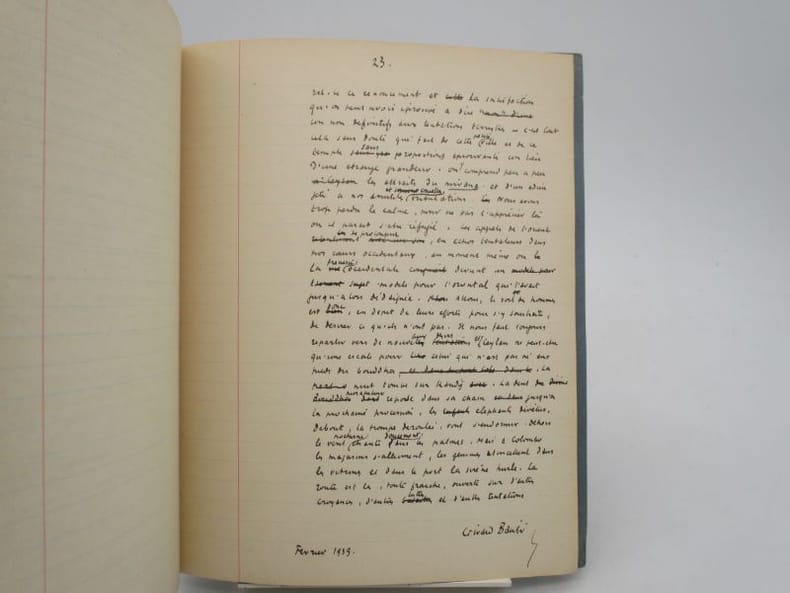 23.
ce renoncement et la satisfaction
qu'on peut avoir éprouvé à dire
un non définitif aux tentations terrestres c'est tout
cela sans doute qui fait de cette petite ville et de ce
temple sans proportions éprouvantes un lieu
d'une étrange grandeur. On comprend peu à peu
les attraits du nirvana et d'un adieu
jeté à nos tribulations. Nous avons
trop perdu le calme, pour ne pas l'apprécier là
où il paraît s'être réfugié. Les appels de l'orient
en échos tentateurs dans
nos cœurs occidentaux, au moment même où le
La occidentale devient un
modèle pour l'oriental qui l'avait
jusqu'alors dédaignée. Allons, le sort des hommes
est donc, en dépit de leurs efforts pour s'y soustraire,
de désirer ce qu'ils n'ont pas. Il nous faut toujours
repartir vers de nouvelles et Ceylan ne peut être
qu'une escale pour celui qui n'est pas né aux
pieds du bouddha, La
nuit tombe sur Kandy La dent
repose dans sa chasse jusqu'à
la prochaine procession, les éléphants dévêtus,
debout, la trompe déroulée, vont s'endormir. Dehors
le vent nocturne chante doucement dans les palmes. Mais à Colombo
les magasins s'allument, les gemmes étincellent dans
les vitrines et dans le port la sirène hurle. La
route est là, toute franche, ouverte sur d'autres
croyances, d'autres luttes et d'autres tentations
Gérard Bauër
Février 1939.